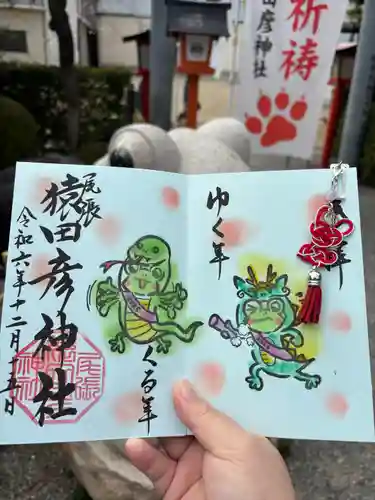 祈祷
田彦神社
尾張
猿田彦神社
令和六年十二月十五日
くる年
ゆく年
年